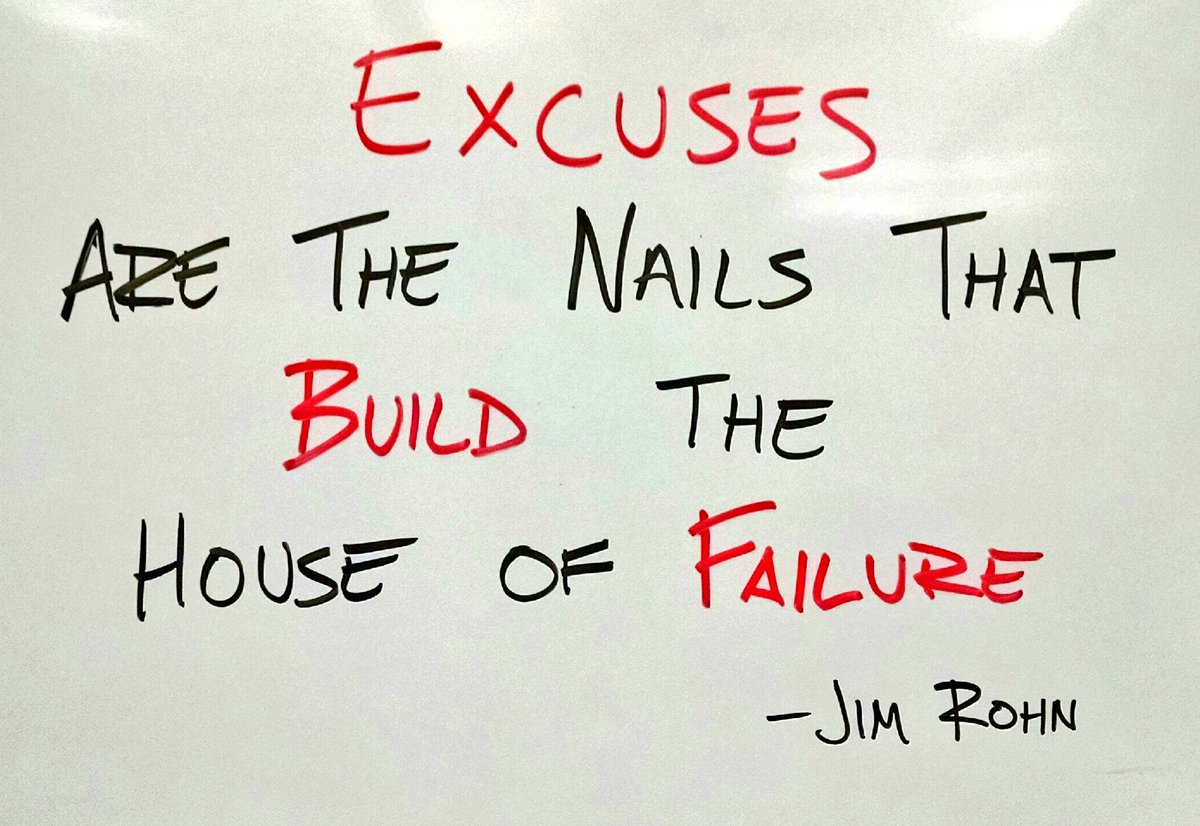 Excuses
Are The Nails That
Build The
House of Failure
- Jim Rohn